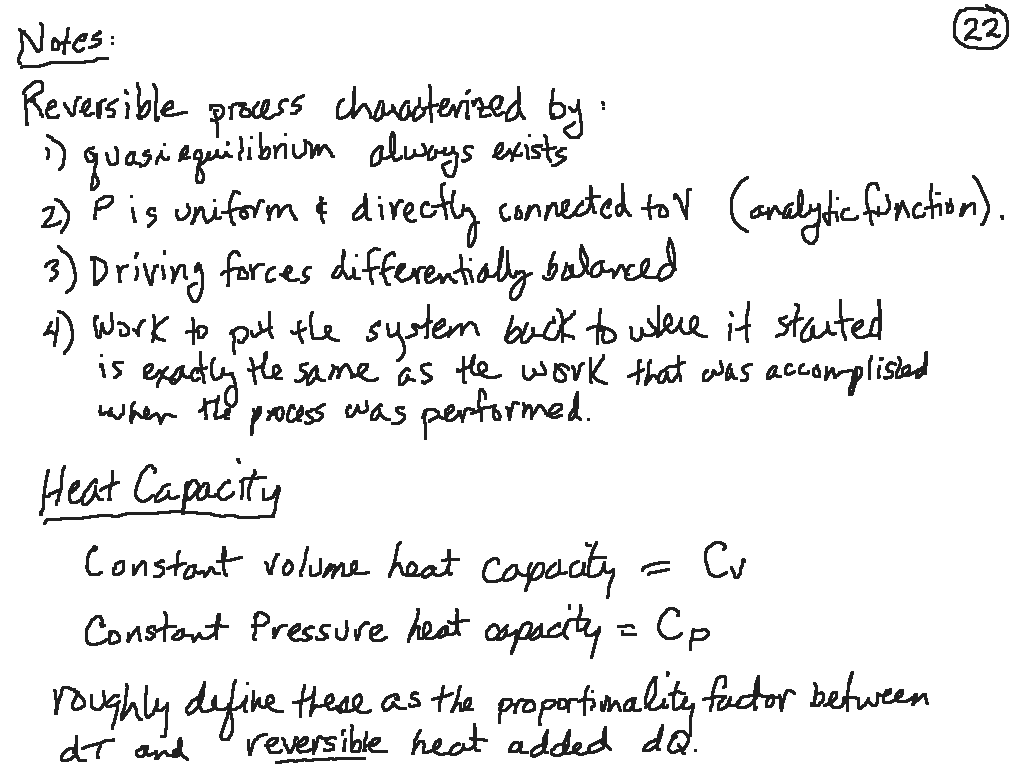 Notes: 22
Reversible process characterized by:
1) quasiequilibrium always exists
2) P is uniform & directly connected to V (analytic function).
3) Driving forces differentially balanced
4) Work to put the system back to where it started
is exactly the same as the work that was accomplished
when the process was performed.
Heat Capacity
Constant volume heat capacity = Cv
Constant Pressure heat capacity = Cp
roughly define these as the proportionality factor between
dT and reversible heat added dQ.